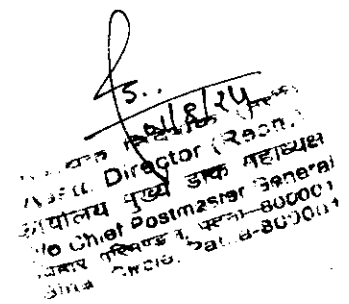 01/8/24
Asstt. Director (Rectt.)
कार्यालय मुख्य डाक महाध्यक्ष
O/o Chief Postmaster General
बिहार परिमण्डल, पटना-800001
Bihar Circle, Patna-800001